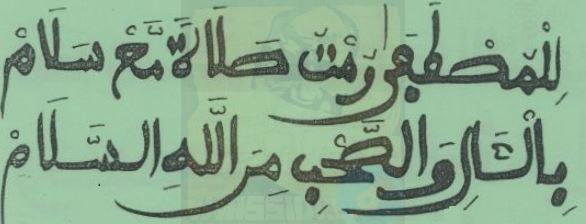 لِلْمُصْطَفَى رُمْتُ صَلَاةً مَّعْ سَلَامْ
بِالْـَالِ وَالصَّحْبِ مِنَ اللَّهِ السَّلَامْ